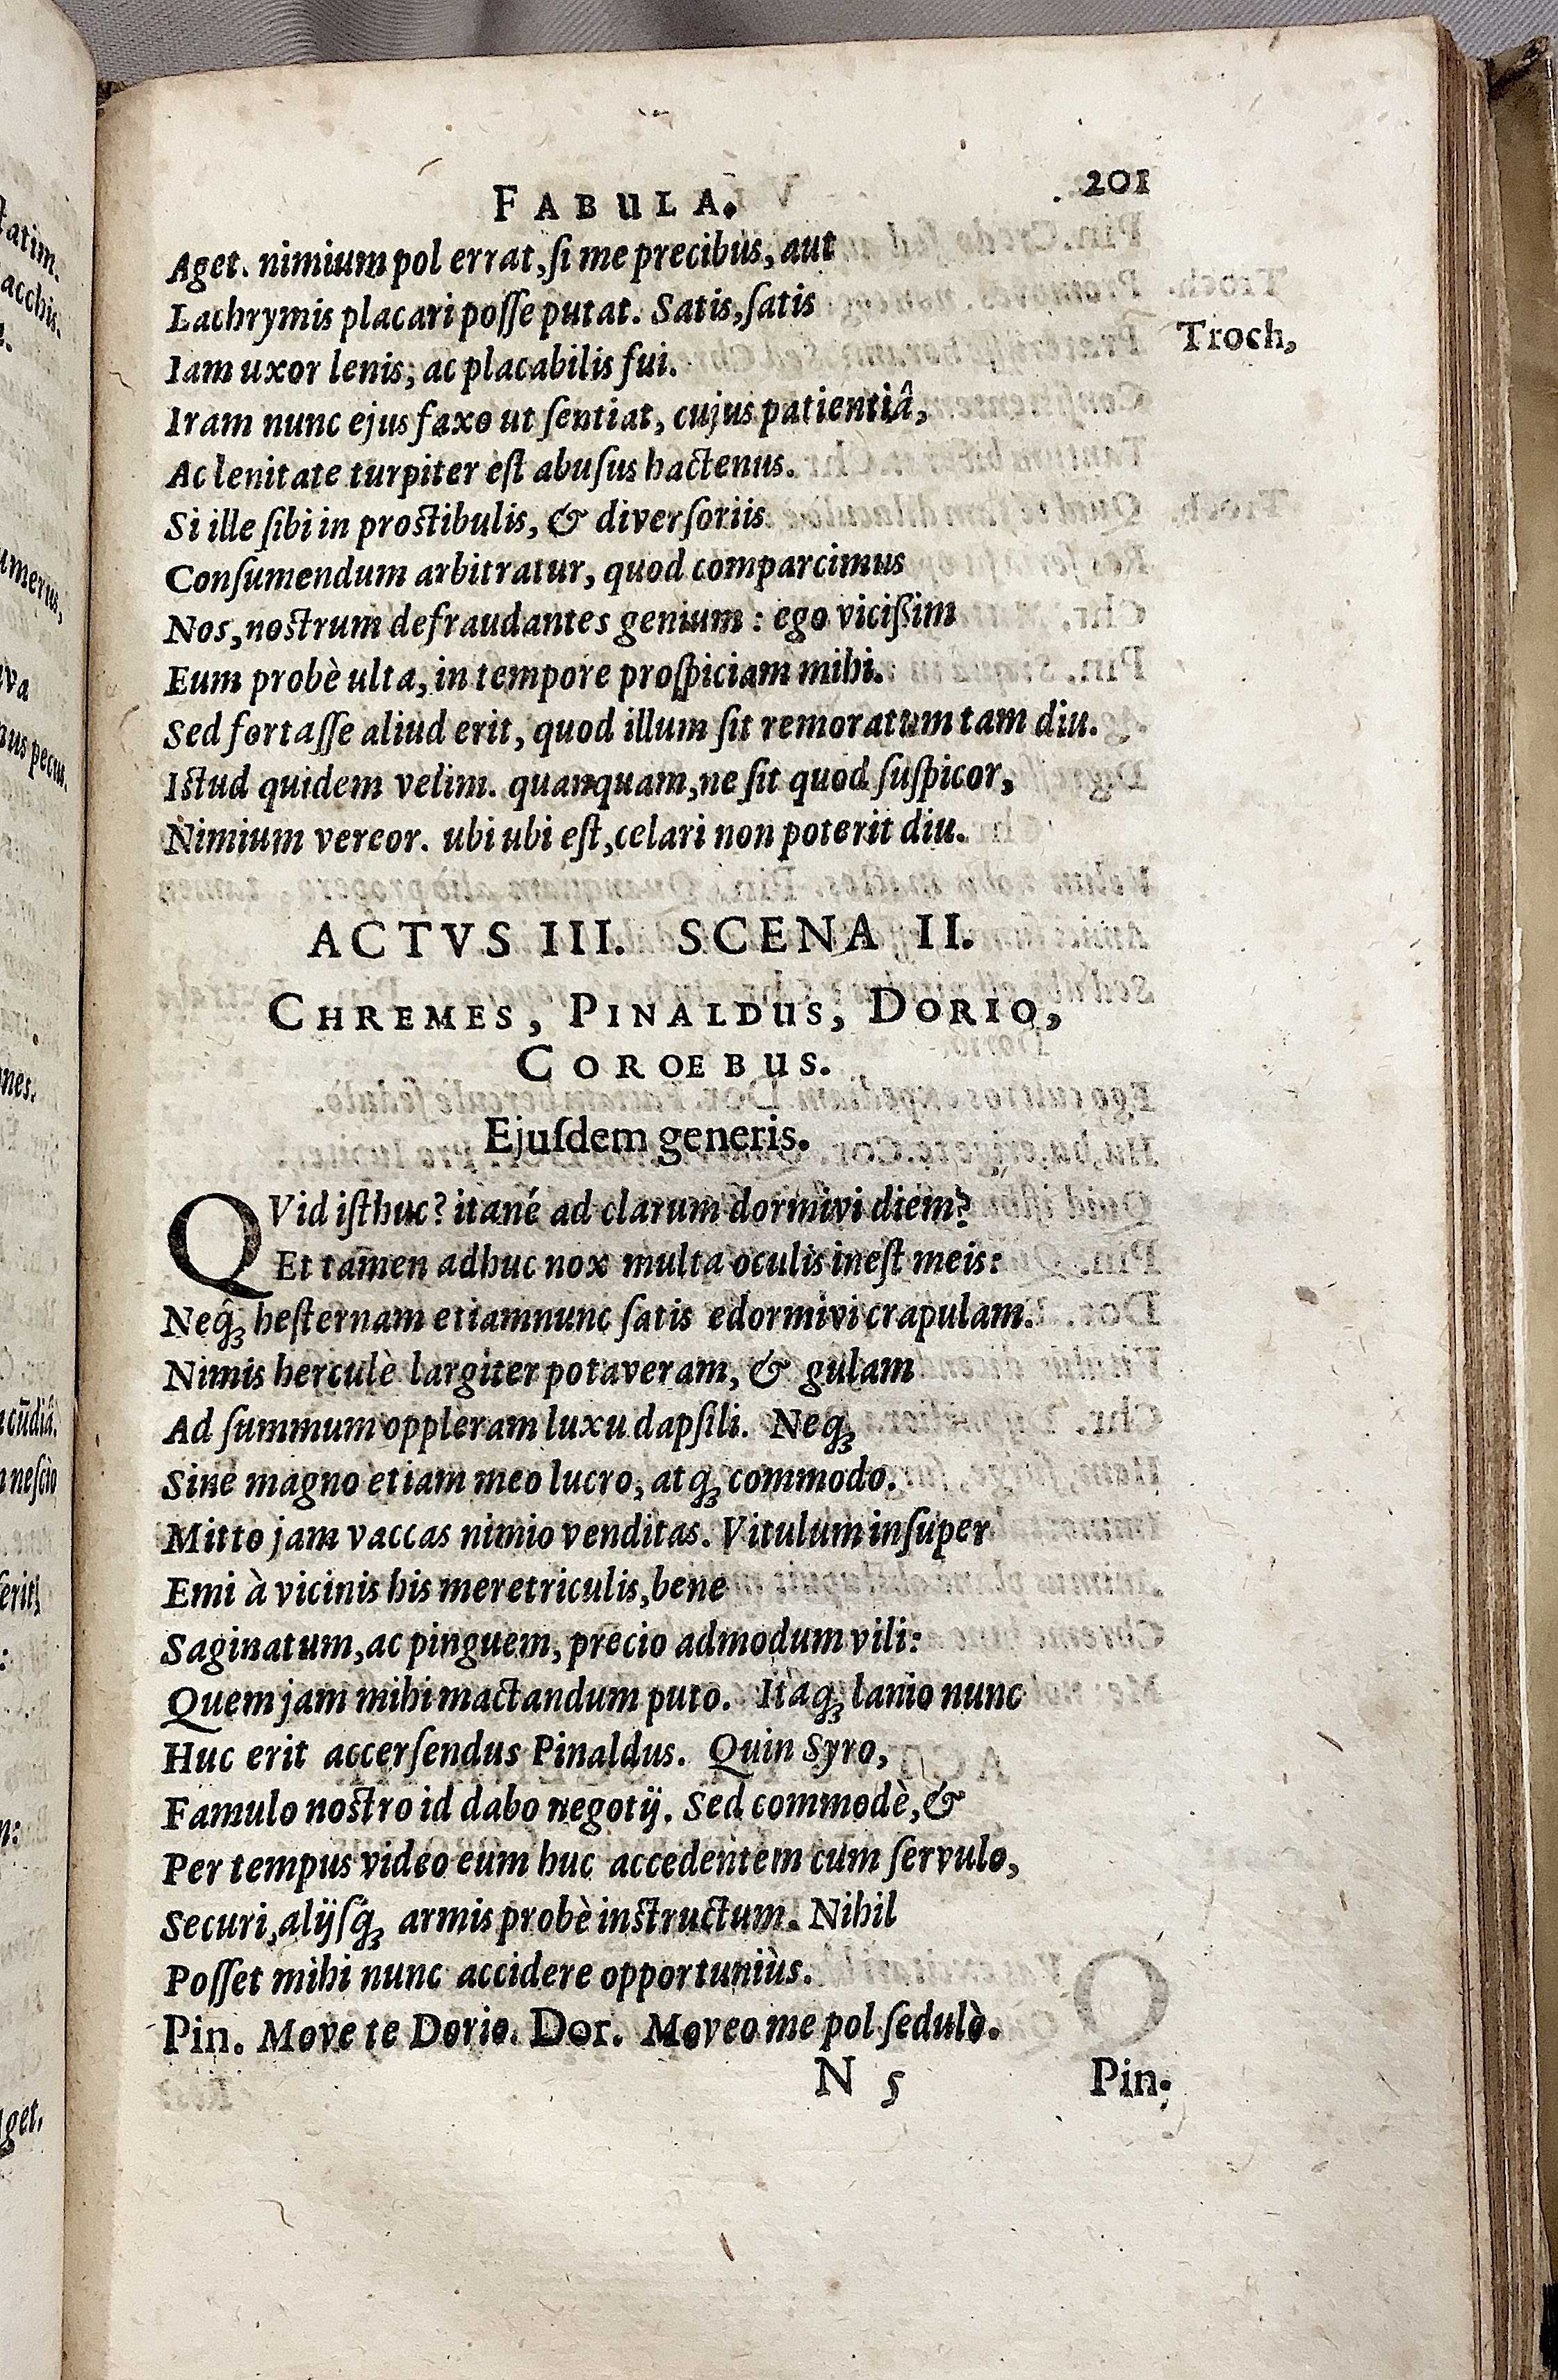 FABULA. 201
Aget. nimium pol errat, ſi me precibus, aut
Lachrymis placari poſſe putat. Satis, ſatis
Troch,
Iam uxor lenis, ac placabilis fui.
Iram nunc ejus faxo ut ſentiat, cujus patientiâ,
Ac lenitate turpiter eſt abuſus hactenus.
Si ille ſibi in proſtibulis, & diverſoriis
Conſumendum arbitratur, quod comparcimus
Nos, noſtrum defraudantes genium : ego viciſſim
Eum probè ulta, in tempore proſpiciam mihi.
Sed fortaſſe aliud erit, quod illum ſit remoratum tam diu.
Iſtud quidem velim. quanquam, ne ſit quod ſuſpicor,
Nimium vereor. ubi ubi eſt, celari non poterit diu.
ACTVS III. SCENA II.
CHREMES, PINALDUS, DORIO,
COROEBUS.
Ejuſdem generis.
QVid iſthuc? itané ad clarum dormivi diem?
Et tamen adhuc nox multa oculis ineſt meis:
Neq́ꝫ heſternam etiamnunc ſatis edormivi crapulam.
Nimis herculè largiter potaveram, & gulam
Ad ſummum oppleram luxu dapſili. Neqꝫ
Sine magno etiam meo lucro, atqꝫ commodo.
Mitto jam vaccas nimio venditas. Vitulum inſuper
Emi à vicinis his meretriculis, bene
Saginatum, ac pinguem, precio admodum vili:
Quem jam mihi mactandum puto. Itaqꝫ lanio nunc
Huc erit accerſendus Pinaldus. Quin Syro,
Famulo noſtro id dabo negotij. Sed commodè, &
Per tempus video eum huc accedentem cum ſervulo,
Securi, alijſq́ꝫ armis probè inſtructum. Nihil
Poſſet mihi nunc accidere opportuniùs.
Pin. Move te Dorio. Dor. Moveo me pol ſedulò.
N 5 Pin.